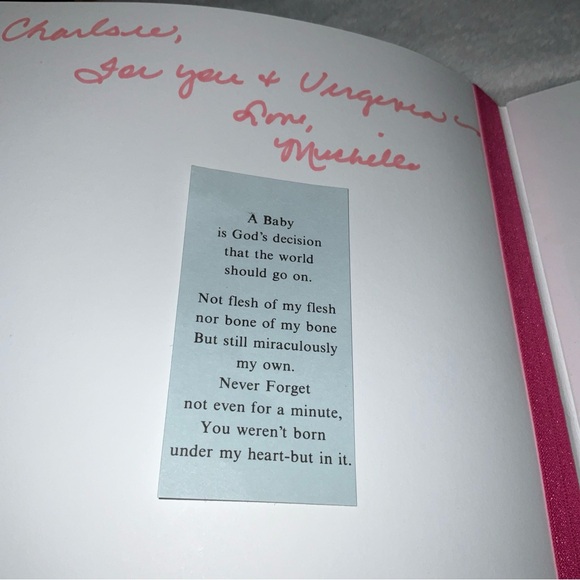 Charlsie,
For you & Virginia -
Love,
Michelle
A Baby
is God's decision
that the world
should go on.
Not flesh of my flesh
nor bone of my bone
But still miraculously
my own.
Never Forget
not even for a minute,
You weren't born
under my heart-but in it.